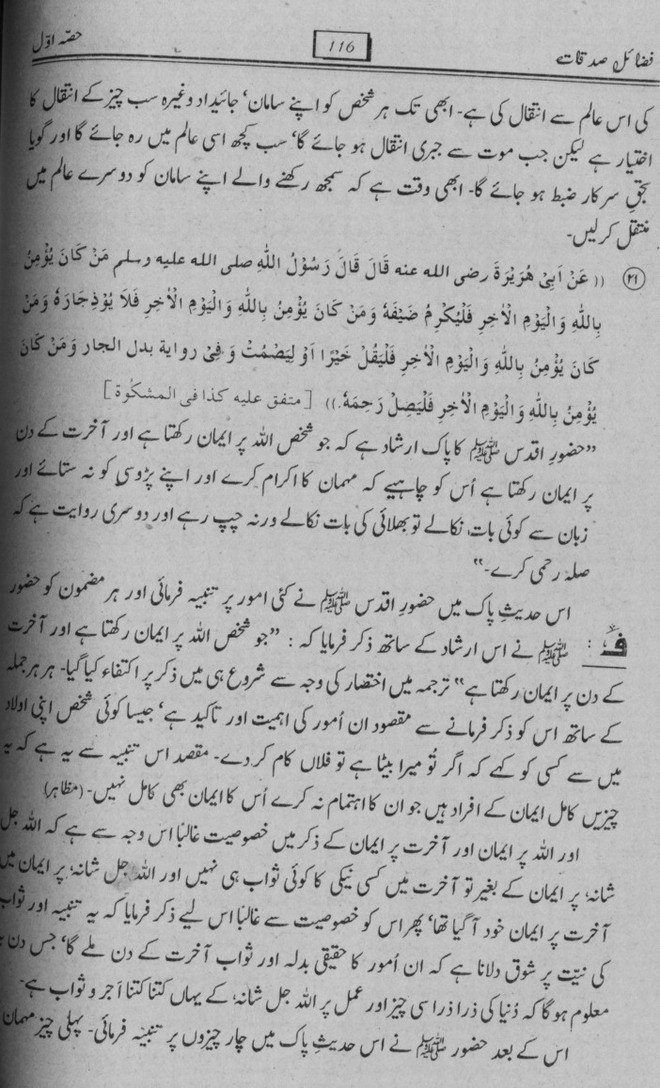 فضائل صدقات 116 حصّہ اوّل
کی اس عالم سے انتقال کی ہے۔ ابھی تک ہر شخص کو اپنے سامان‘ جائیداد وغیرہ سب چیز کے انتقال کا
اختیار ہے لیکن جب موت سے جبری انتقال ہو جائے گا‘ سب کچھ اسی عالم میں رہ جائے گا اور گویا
بحقِ سرکار ضبط ہو جائے گا۔ ابھی وقت ہے کہ سمجھ رکھنے والے اپنے سامان کو دوسرے عالم میں
منتقل کرلیں۔
(۲۱) ((عَنْ اَبِیْ هُرَیْرَةَ رضی الله عنه قَالَ قَالَ رَسُوْلُ اللّٰهِ صلی الله علیه وسلم مَنْ كَانَ یُؤْمِنُ
بِاللّٰهِ وَالْیَوْمِ الْاٰخِرِ فَلْیُكْرِمْ ضَیْفَهٗ وَمَنْ كَانَ یُؤْمِنُ بِاللّٰهِ وَالْیَوْمِ الْاٰخِرِ فَلَا یُوْذِجَارَهٗ وَمَنْ
كَانَ یُؤْمِنُ بِاللّٰهِ وَالْیَوْمِ الْاٰخِرِ فَلْیَقُلْ خَیْرًا اَوْ لِیَصْمُتْ وَفِیْ روایة بدل الجار وَمَنْ كَانَ
یُؤْمِنُ بِاللّٰهِ وَالْیَوْمِ الْاٰخِرِ فَلْیَصِلْ رَحِمَهٗ.)) [متفق علیه كذا فی المشكٰوة]
”حضورِ اقدس ﷺ کا پاک ارشاد ہے کہ جو شخص اللہ پر ایمان رکھتا ہے اور آخرت کے دن
پر ایمان رکھتا ہے اُس کو چاہیے کہ مہمان کا اکرام کرے اور اپنے پڑوسی کو نہ ستائے اور
زبان سے کوئی بات نکالے تو بھلائی کی بات نکالے ورنہ چپ رہے اور دوسری روایت ہے کہ
صلہ رحمی کرے۔“
اس حدیثِ پاک میں حضورِ اقدس ﷺ نے کئی امور پر تنبیہ فرمائی اور ہر مضمون کو حضور
ف: ﷺ نے اس ارشاد کے ساتھ ذکر فرمایا کہ: ”جو شخص اللہ پر ایمان رکھتا ہے اور آخرت
کے دن پر ایمان رکھتا ہے“ ترجمہ میں اختصار کی وجہ سے شروع ہی میں ذکر پر اکتفاء کیا گیا۔ ہر ہر جملہ
کے ساتھ اس کو ذکر فرمانے سے مقصود ان اُمور کی اہمیت اور تاکید ہے‘ جیسا کوئی شخص اپنی اولاد
میں سے کسی کو کہے کہ اگر تُو میرا بیٹا ہے تو فلاں کام کر دے۔ مقصد اس تنبیہ سے یہ ہے کہ یہ
چیزیں کامل ایمان کے افراد ہیں جو ان کا اہتمام نہ کرے اُس کا ایمان بھی کامل نہیں۔ (مظاہر)
اور اللہ پر ایمان اور آخرت پر ایمان کے ذکر میں خصوصیت غالبًا اس وجہ سے ہے کہ اللہ جل
شانہٗ پر ایمان کے بغیر تو آخرت میں کسی نیکی کا کوئی ثواب ہی نہیں اور اللہ جل شانہٗ پر ایمان میں
آخرت پر ایمان خود آ گیا تھا‘ پھر اس کو خصوصیت سے غالبًا اس لیے ذکر فرمایا کہ یہ تنبیہ اور ثواب
کی نیت پر شوق دلانا ہے کہ ان اُمور کا حقیقی بدلہ اور ثواب آخرت کے دن ملے گا‘ جس دن یہ
معلوم ہوگا کہ دُنیا کی ذرا ذرا سی چیز اور عمل پر اللہ جل شانہٗ کے یہاں کتنا کتنا اجر و ثواب ہے۔
اس کے بعد حضور ﷺ نے اس حدیثِ پاک میں چار چیزوں پر تنبیہ فرمائی۔ پہلی چیز مہمان